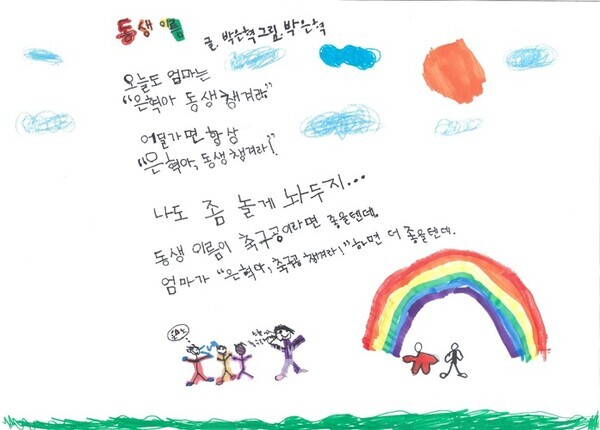 동생 이름
글. 박은혁 그림. 박은혁
오늘도 엄마는
"은혁아 동생 챙겨라."
어딜 가면 항상
"은혁아, 동생 챙겨라!"
나도 좀 놀게 놔두지...
동생 이름이 축구공이라면 좋을텐데.
엄마가 "은혁아, 축구공 챙겨라!" 하면 더 좋을텐데.